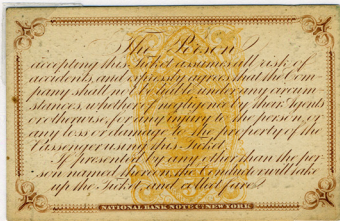 The Person
accepting this Ticket assumes all risk of
accidents, and expressly agrees that the Com-
pany shall not be liable under any circum
stances, whether of negligence by their Agents
or otherwise, for any injury to the person, or
any loss or damage to the property of the
Passenger using this Ticket.
If presented by any other than the per-
son named thereon, the Conductor will take
up the Ticket and collect fare.
NATIONAL BANK NOTE CO. NEW YORK